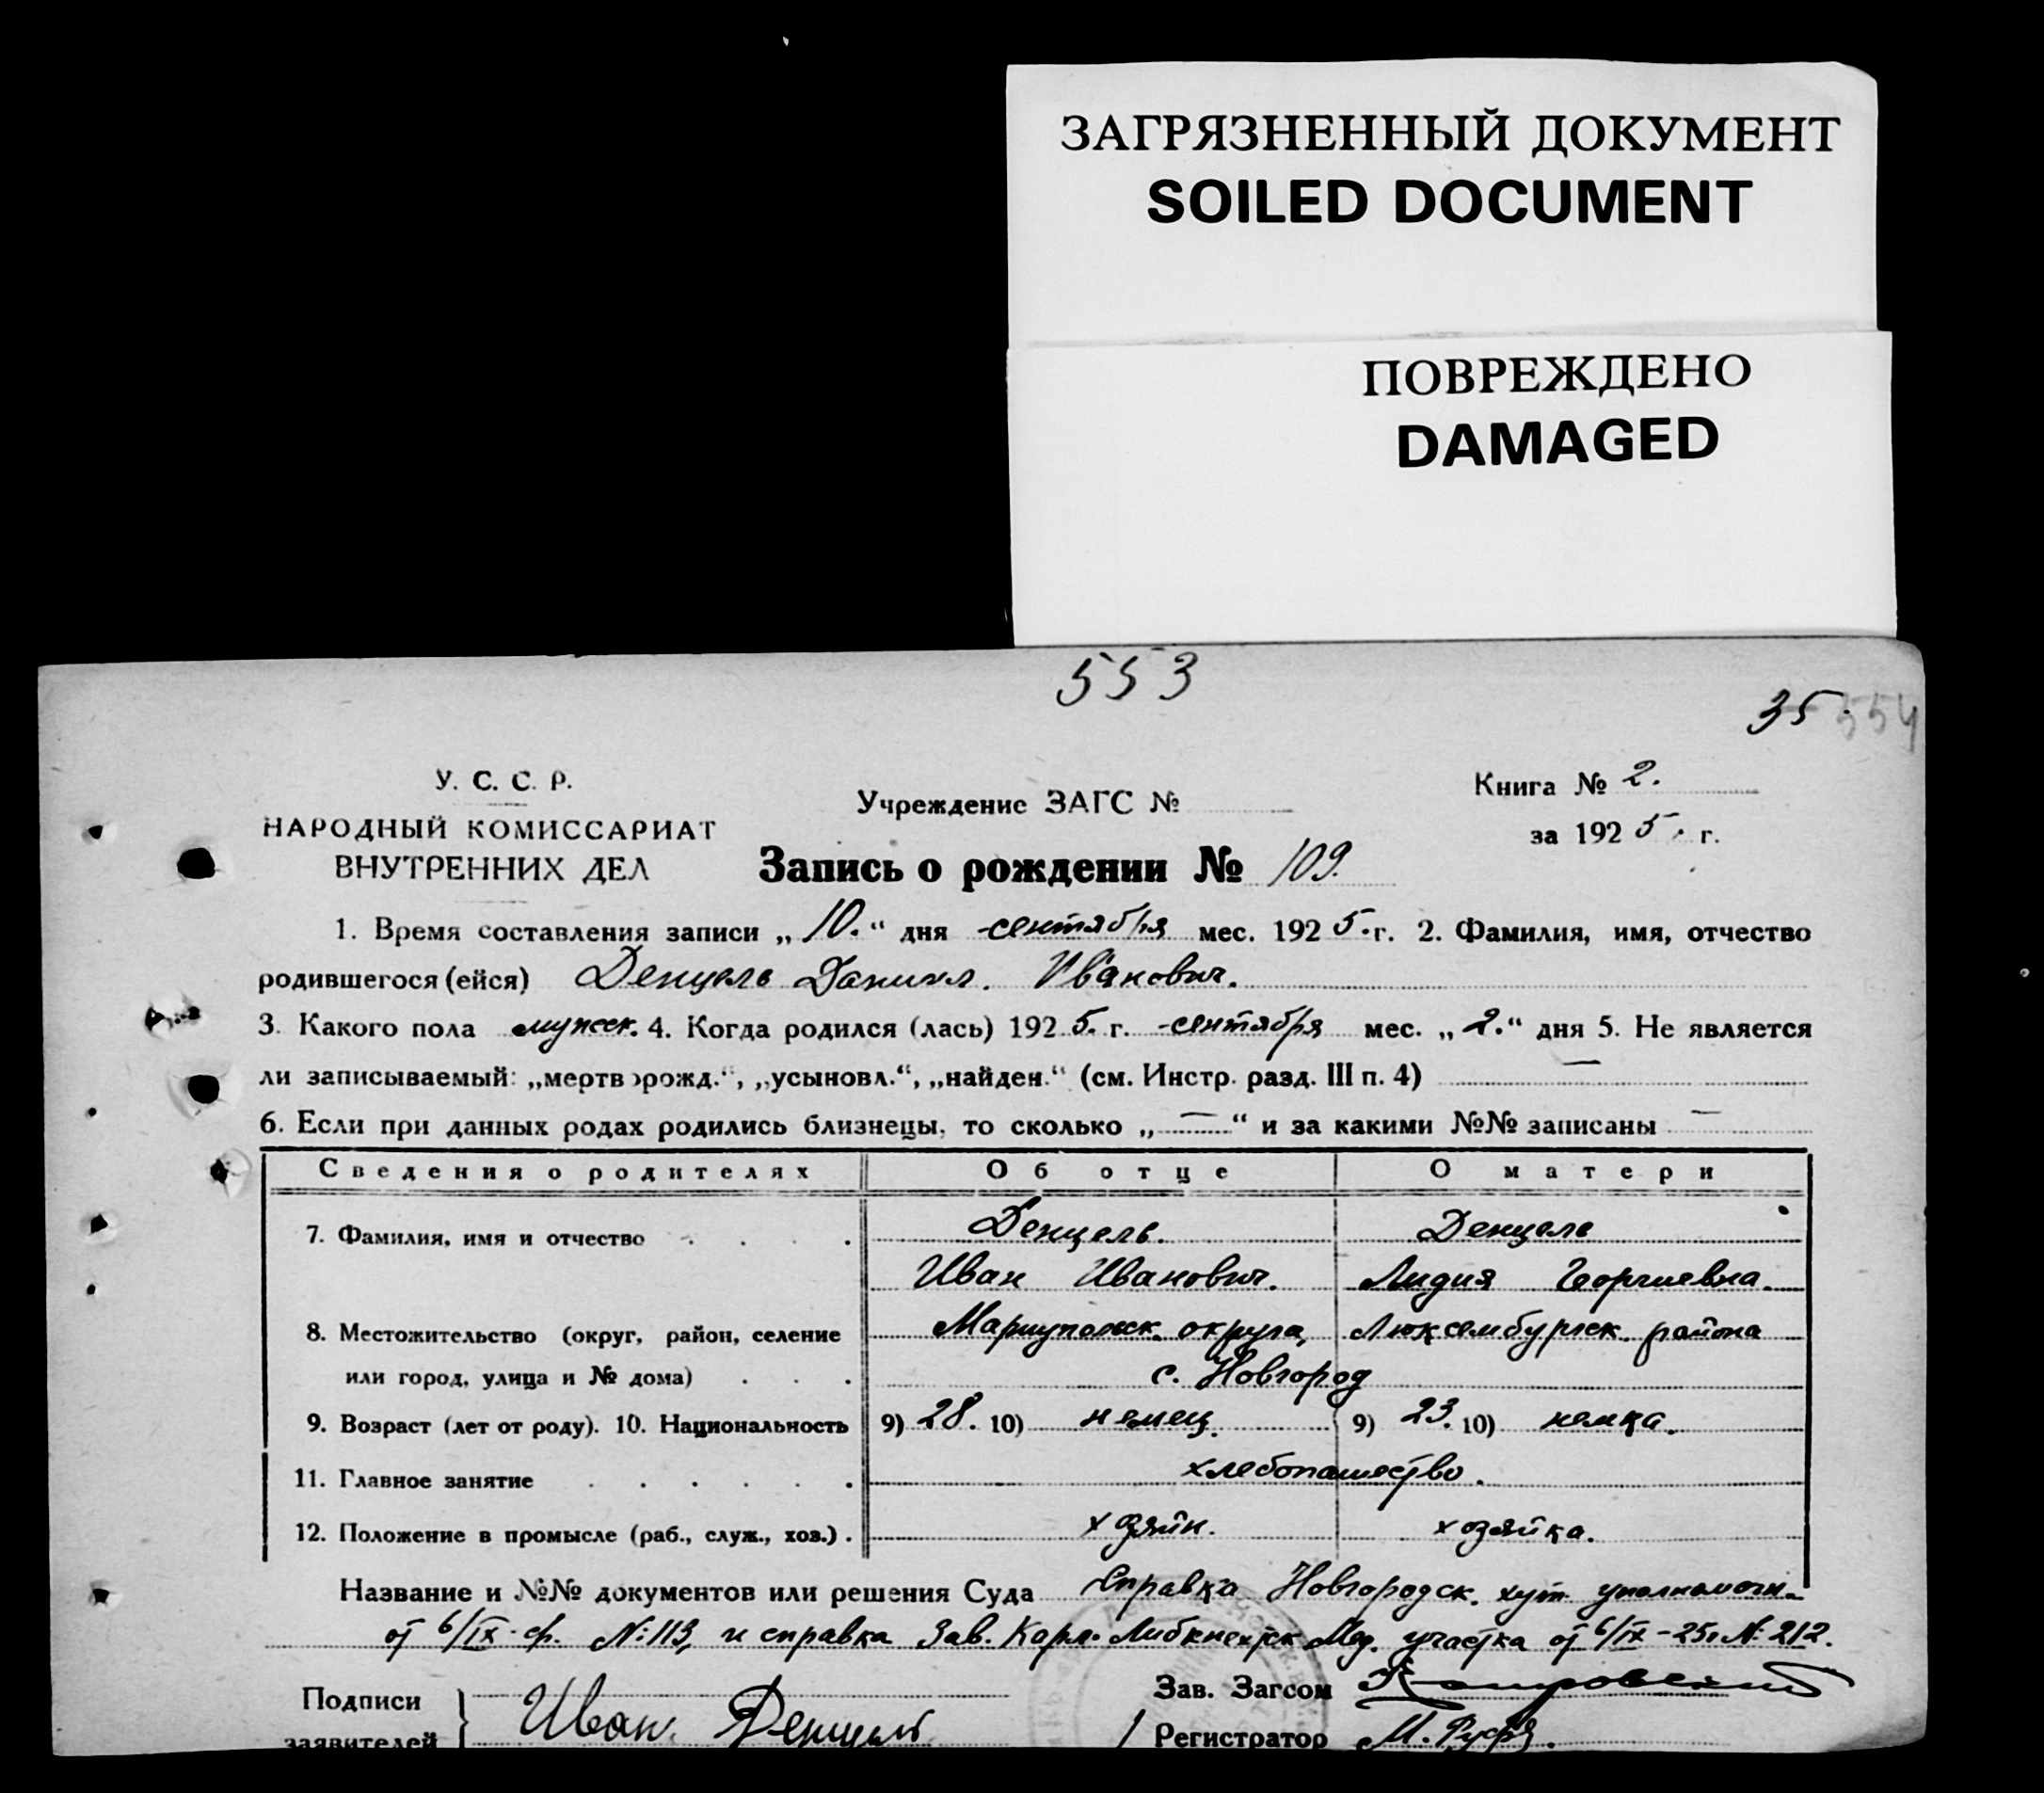 ЗАГРЯЗНЕННЫЙ ДОКУМЕНТ
SOILED DOCUMENT
ПОВРЕЖДЕНО
DAMAGED
553
35. 554
У. С. С. Р.
НАРОДНЫЙ КОМИССАРИАТ
ВНУТРЕННИХ ДЕЛ
Учреждение ЗАГС №
Книга № 2.
за 1925. г.
Запись о рождении № 109.
1. Время составления записи „10.“ дня сентября мес. 1925. г. 2. Фамилия, имя, отчество
родившегося (ейся) Денцель Даниил. Иванович.
3. Какого пола мужск. 4. Когда родился (лась) 1925. г. сентября мес. „2.“ дня 5. Не является
ли записываемый: „мертворожд.“, „усыновл.“, „найден.“ (см. Инстр. разд. III п. 4) —
6. Если при данных родах родились близнецы, то сколько „—“ и за какими №№ записаны —
Сведения о родителях Об отце О матери
7. Фамилия, имя и отчество . . . . Денцель. Денцель
Иван Иванович. Лидия Георгиевна.
8. Местожительство (округ, район, селение Мариупольск. округа, Люксембургск. района
или город, улица и № дома) . . . с. Новгород
9. Возраст (лет от роду). 10. Национальность 9) 28. 10) немец. 9) 23. 10) немка.
11. Главное занятие . . . . . . хлебопашество.
12. Положение в промысле (раб., служ., хоз.) . хозяин. хозяйка.
Название и №№ документов или решения Суда Справка Новгородск. хут. уполномочн.
от 6/IX-с.г. №113, и справка Зав. Карл-Либкнехтск Мед. участка от 6/IX-25г. № 212.
Подписи Зав. Загсом
заявителей Иван Денцель Регистратор М.